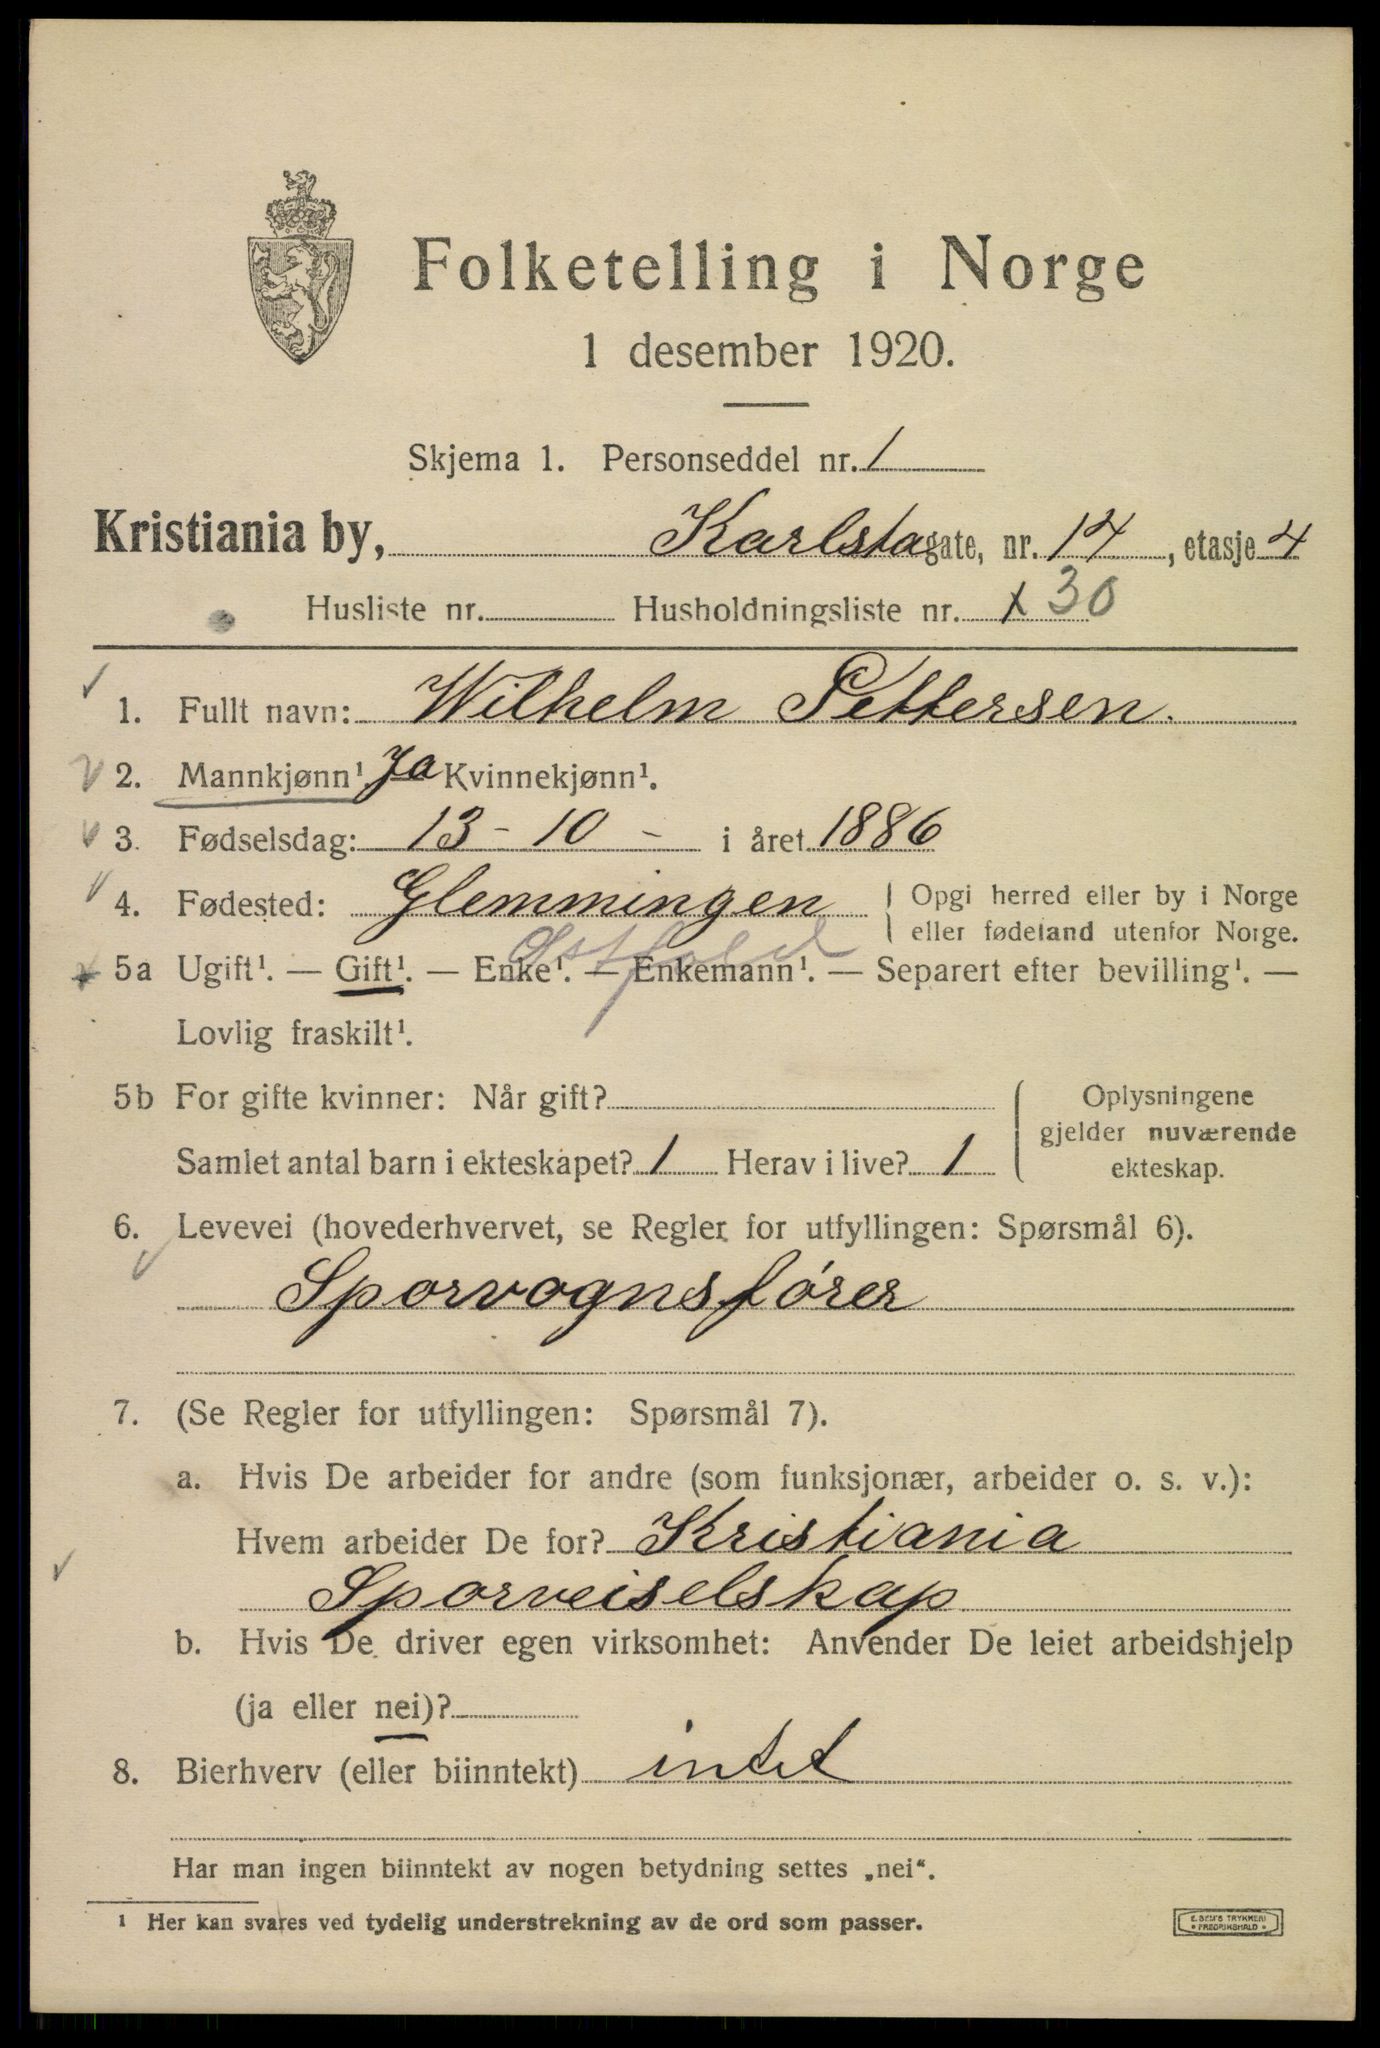 Folketelling i Norge
1 desember 1920.
Skjema 1. Personseddel nr. 1
Kristiania by, Karlstagate, nr. 14, etasje 4
Husliste nr. Husholdningsliste nr. x 30
1. Fullt navn: Wilhelm Pettersen.
2. Mannkjønn¹. Ja Kvinnekjønn¹.
3. Fødselsdag: 13 - 10 - i året 1886
4. Fødested: Glemmingen { Opgi herred eller by i Norge
eller fødeland utenfor Norge.
Østfold
5a Ugift¹. — Gift¹. — Enke¹. — Enkemann¹. — Separert efter bevilling¹. —
Lovlig fraskilt¹.
5b For gifte kvinner: Når gift? { Oplysningene
gjelder nuværende
Samlet antal barn i ekteskapet? 1 Herav i live? 1 ekteskap.
6. Levevei (hovederhvervet, se Regler for utfyllingen: Spørsmål 6).
Sporvognsfører
7. (Se Regler for utfyllingen: Spørsmål 7).
a. Hvis De arbeider for andre (som funksjonær, arbeider o. s. v.):
Hvem arbeider De for? Kristiania
Sporveiselskap
b. Hvis De driver egen virksomhet: Anvender De leiet arbeidshjelp
(ja eller nei)?
8. Bierhverv (eller biinntekt) intet
Har man ingen biinntekt av nogen betydning settes „nei“.
¹ Her kan svares ved tydelig understrekning av de ord som passer.
E. SEM'S TRYKKERI
• FREDRIKSHALD •